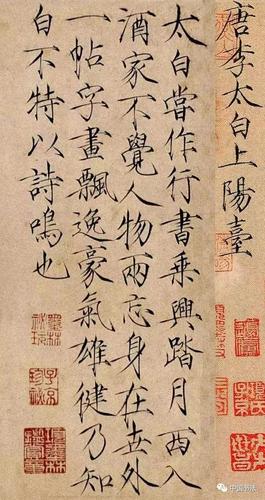 唐李太白上陽臺
太白嘗作行書乘興踏月西入
酒家不覺人物兩忘身在世外
一帖字畫飄逸豪氣雄健乃知
白不特以詩鳴也
中国书法